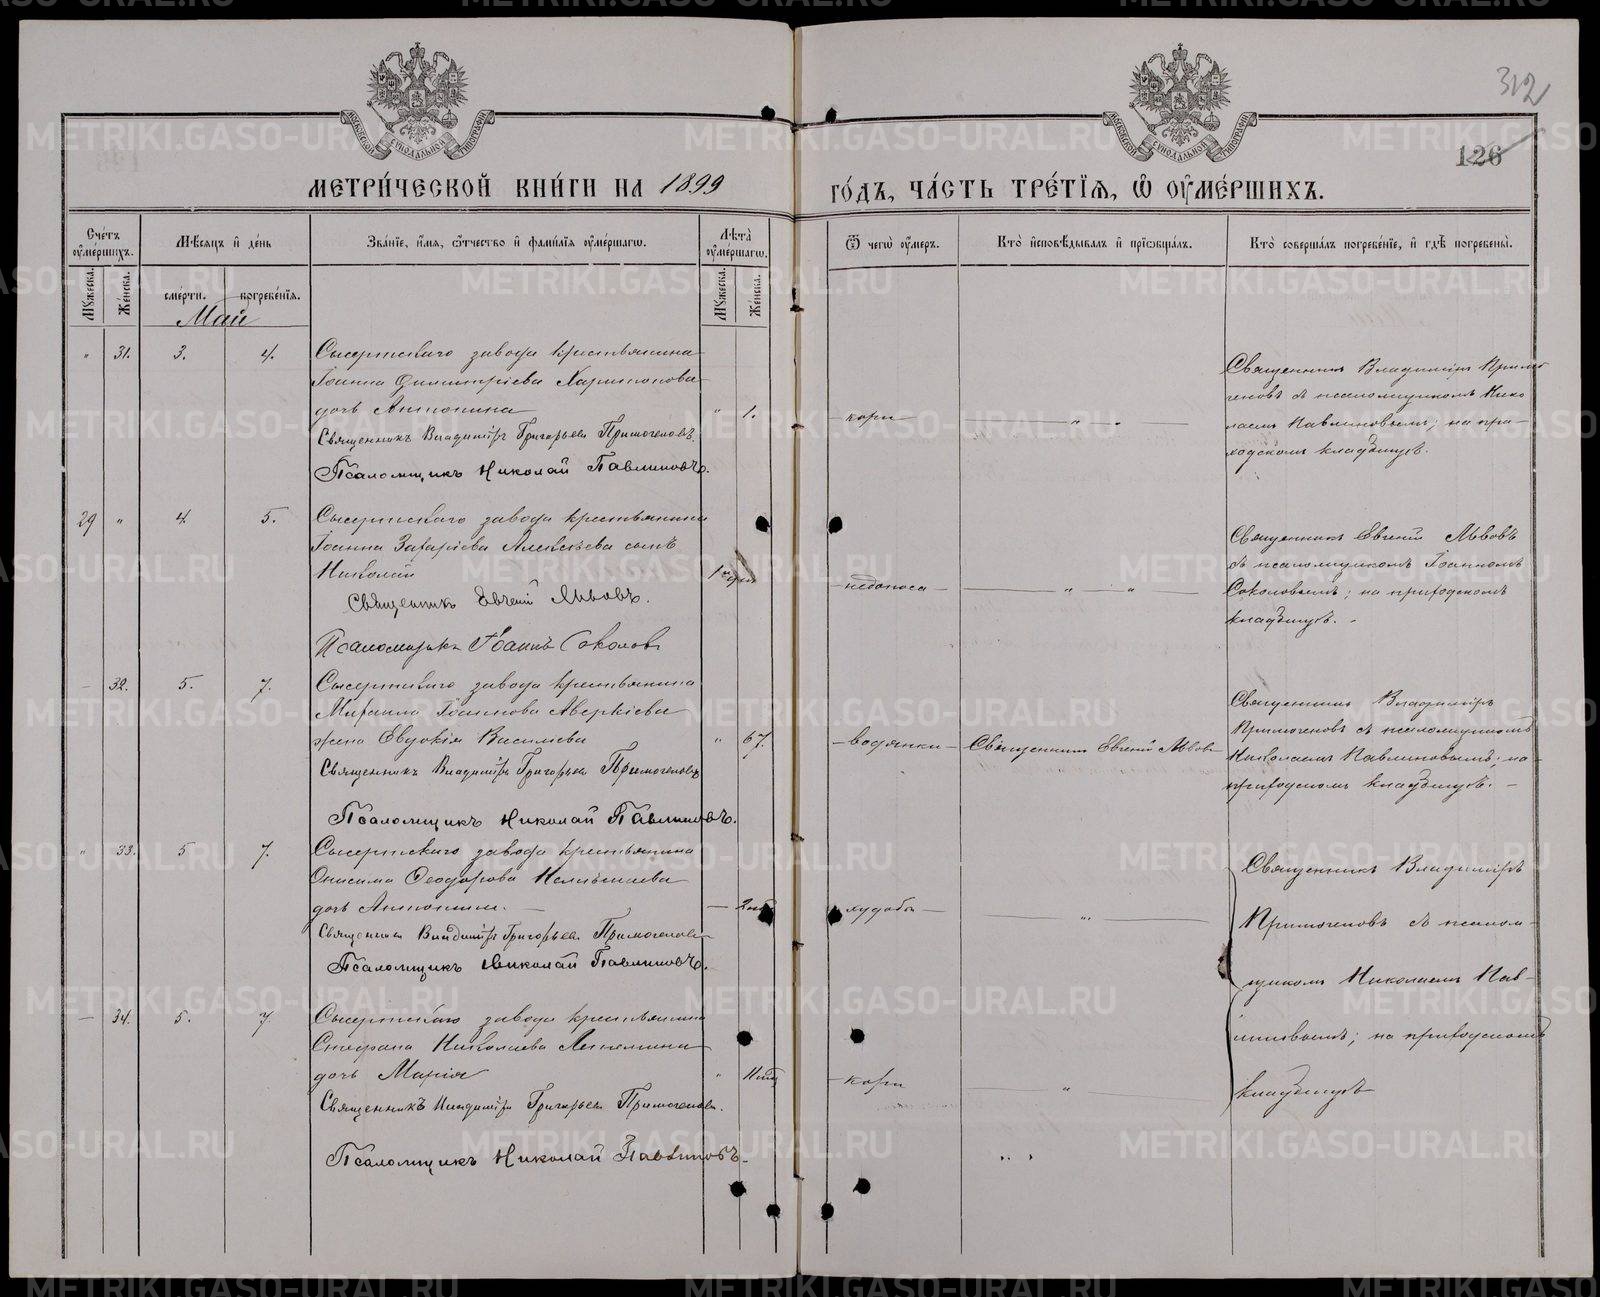 312
126
МОСКОВСКОЙ СѴНОДАЛЬНОЙ ТИПОГРАФІИ
МОСКОВСКОЙ СѴНОДАЛЬНОЙ ТИПОГРАФІИ
МЕТРИ́ЧЕСКОЙ КНИ́ГИ НА 1899
ГО́ДЪ, ЧА́СТЬ ТРЕ́ТІѦ, Ѡ҆ ОУ҆МЕ́РШИХЪ.
Сче́тъ оу҆ме́ршихъ.
Мꙋ́жеска.
Же́нска.
Мѣ́сѧцъ и҆ де́нь
сме́рти.
погребе́нїѧ.
Май
Зва́нїе, и҆́мѧ, ѻ҆́тчество и҆ фами́лїѧ оу҆ме́ршагѡ.
Лѣ́та оу҆ме́ршагѡ.
Мꙋ́жеска.
Же́нска.
Ѿ чегѡ̀ оу҆́меръ.
Кто̀ и҆сповѣ́дывалъ и҆ прїѡбща́лъ.
Кто̀ соверша́лъ погребе́нїе, и҆ гдѣ̀ погребены̀.
" 31. 3. 4.
Сысертскаго завода крестьянина
Іоанна Димитріева Харитонова
дочь Антонина
" 1.
кори
" "
Священникъ Владиміръ Григорьевъ Примогеновъ.
Псаломщикъ Николай Павлиновъ.
Священникъ Владиміръ Примо
геновъ съ псаломщикомъ Нико
лаемъ Павлиновымъ; на при-
ходскомъ кладбищѣ.
29 " 4. 5.
Сысертскаго завода крестьянина
Іоанна Захаріева Алексѣева сынъ
Николай
недоноса
" "
Священникъ Евгеній Львовъ.
Псаломщикъ Іоаннъ Соколовъ
Священникъ Евгеній Львовъ
съ псаломщикомъ Іоанномъ
Соколовымъ; на приходскомъ
кладбищѣ.
32. 5. 7.
Сысертскаго завода крестьянина
Михаила Іоаннова Аверкіева
жена Евдокія Васильева
" 67.
водянки
Священникъ Евгеній Львовъ
Священникъ Владиміръ Григорьевъ Примогеновъ
Псаломщикъ Николай Павлиновъ.
Священникъ Владиміръ
Примогеновъ съ псаломщикомъ
Николаемъ Павлиновымъ; на
приходскомъ кладбищѣ.
" 33. 5 7.
Сысертскаго завода крестьянина
Онисима Ѳеодорова
дочь Антонина.
худобы
"
Священникъ Владиміръ Григорьевъ Примогеновъ
Псаломщикъ Николай Павлиновъ.
Священникъ Владиміръ
Примогеновъ съ псалом-
щикомъ Николаемъ Пав-
линовымъ; на приходскомъ
кладбищѣ
34. 5. 7
Сысертскаго завода крестьянина
Стефана Николаева
дочь Марія
"
кори
"
Священникъ Владиміръ Григорьевъ Примогеновъ.
Псаломщикъ Николай Павлиновъ.
METRIKI.GASO-URAL.RU